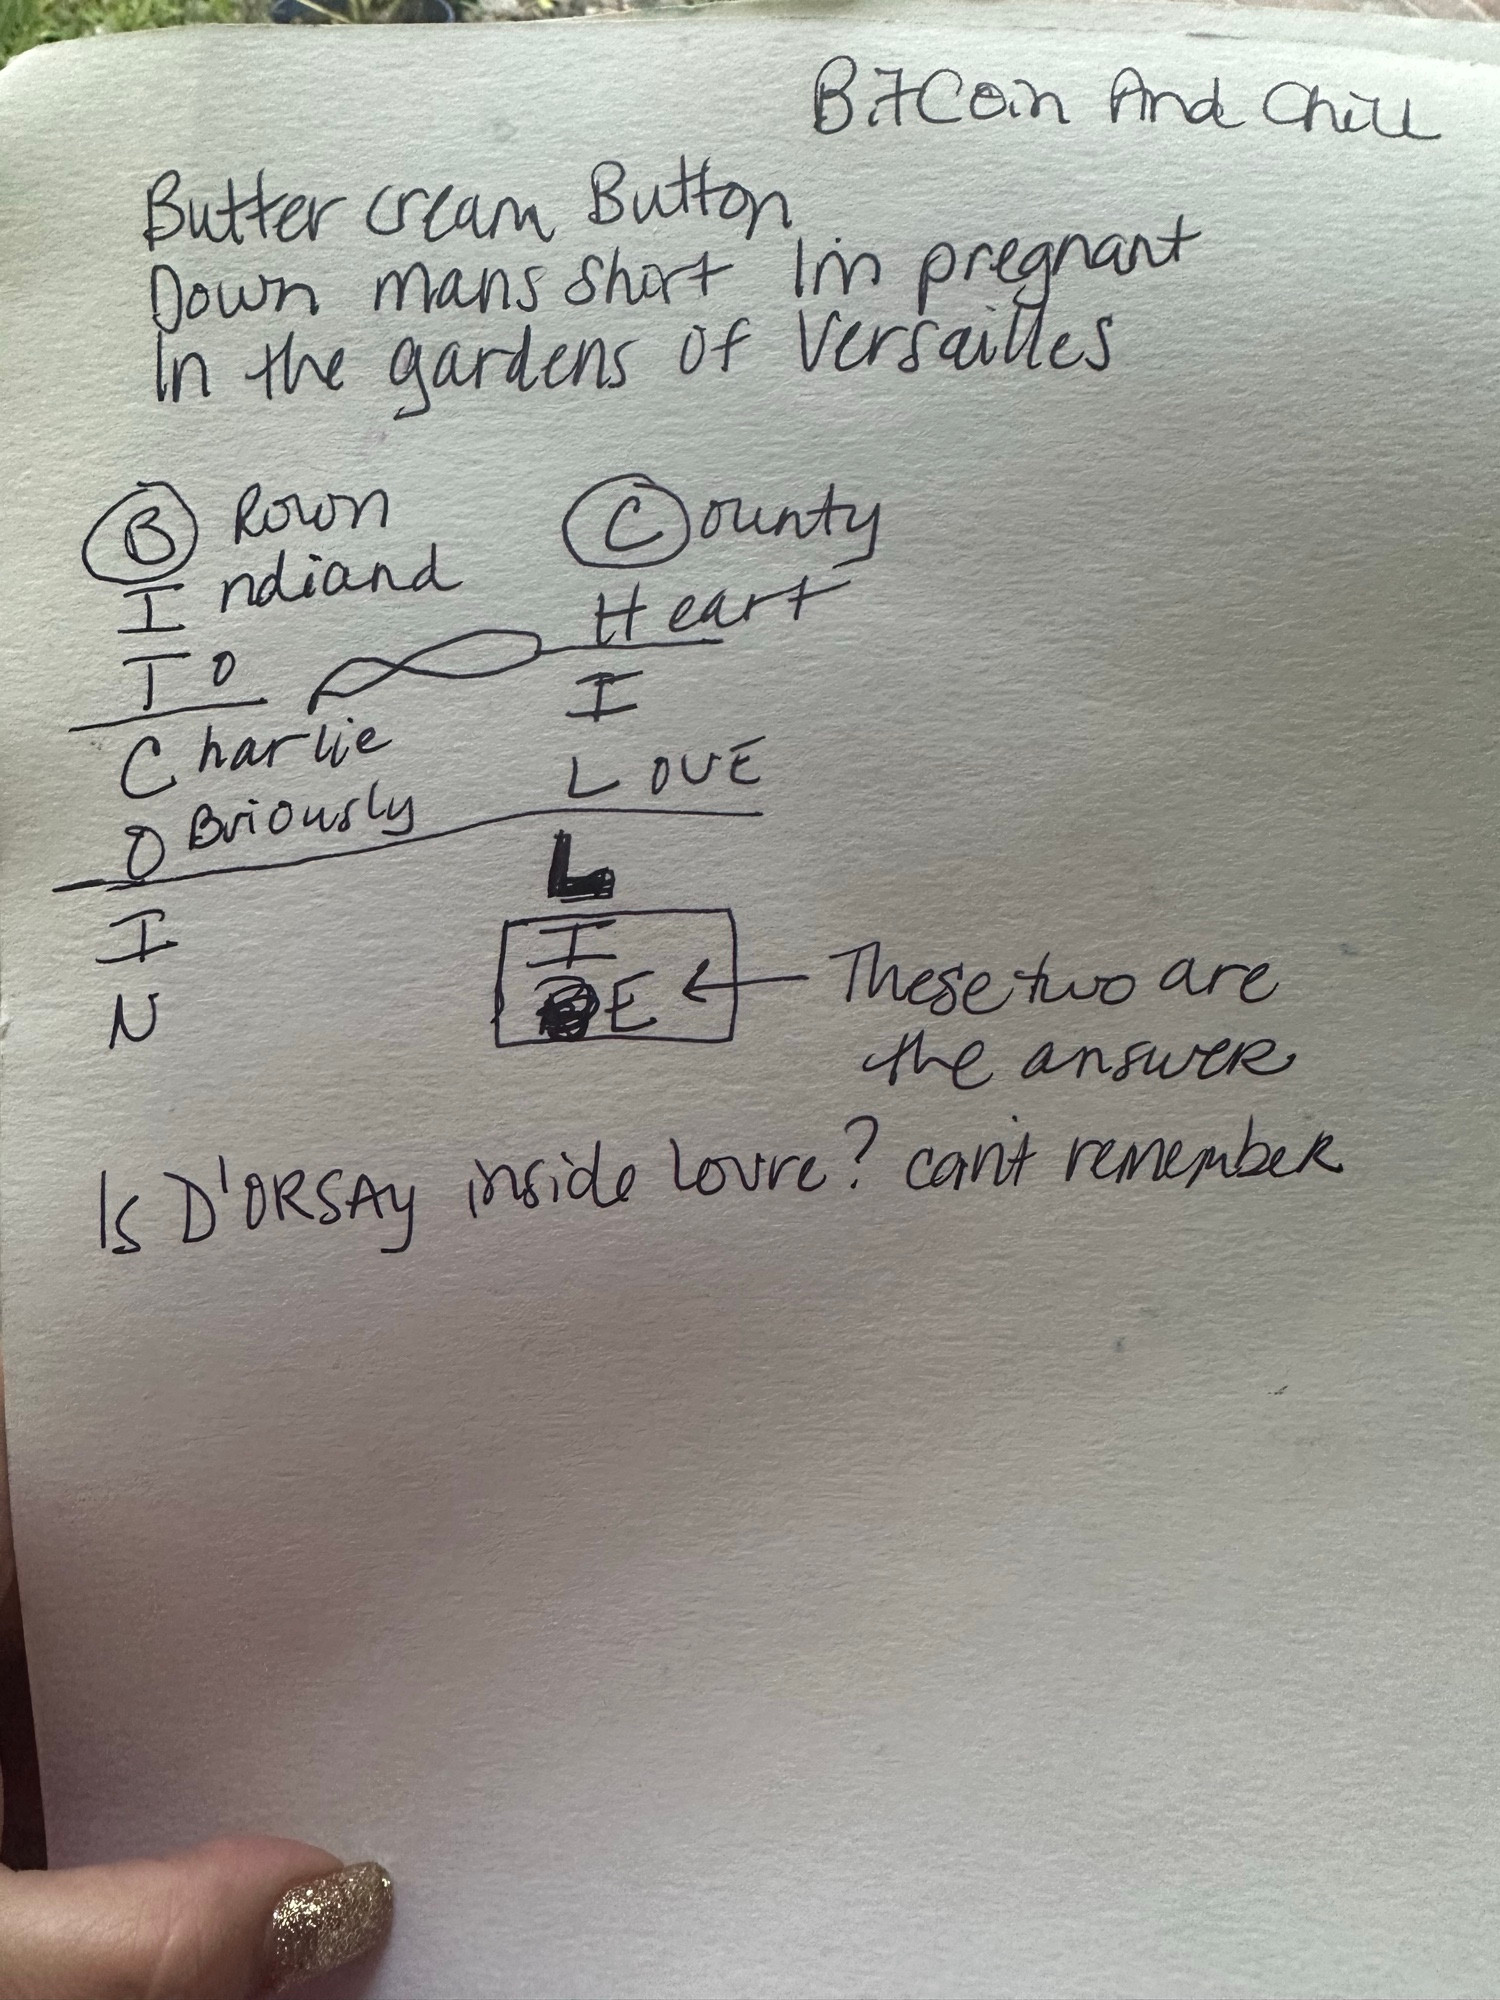 BitCoin And Chill
Butter cream Button
Down mans shirt Im pregnant
In the gardens of Versailles
B Rown County
I ndiand Heart
T o I
C harlie L OVE
O Bviously L
I I
N E ← These two are
the answer
Is D'ORSAY inside Louvre? can't remember